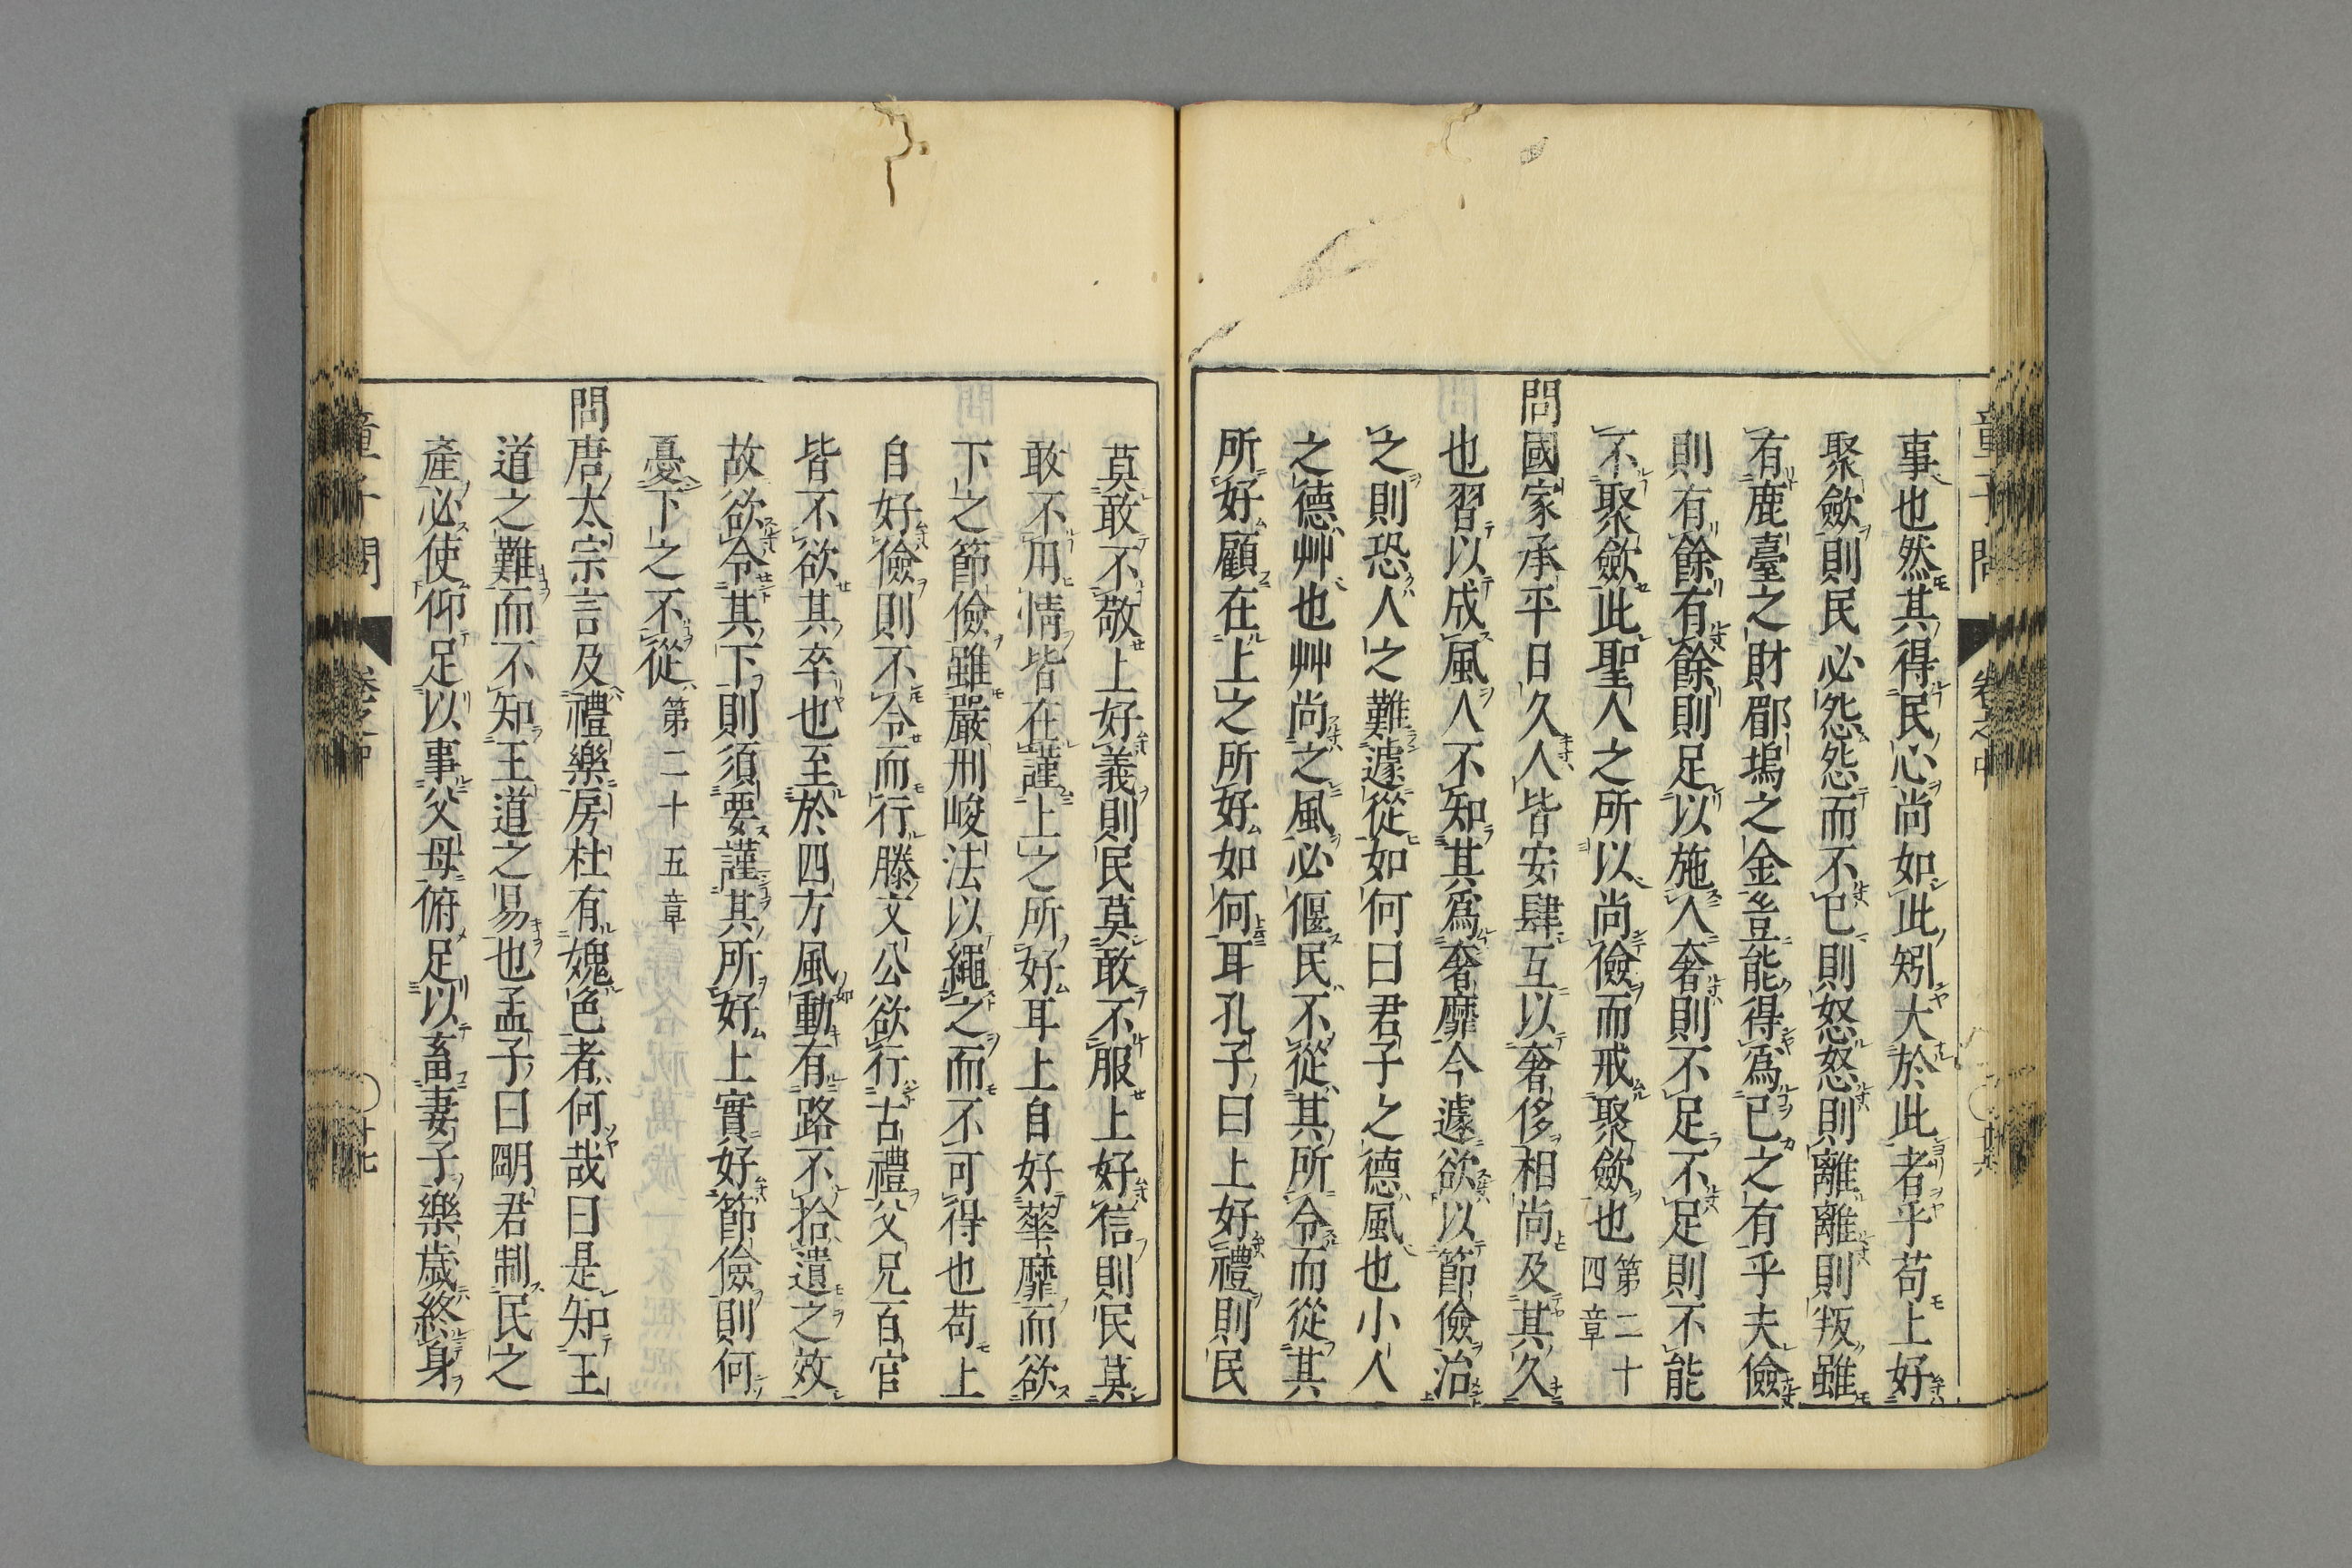 事也然其得民心尚如此矧大於此者乎苟上好
聚斂則民必怨怨而不已則怒怒則離離則叛雖
有鹿臺之財郿塢之金豈能得爲已之有乎夫儉
則有餘有餘則足以施人奢則不足不足則不能
不聚斂此聖人之所以尚儉而戒聚斂也第二十四章
問國家承平日久人皆安肆互以奢侈相尚及其久
也習以成風人不知其爲奢靡今遽欲以節儉治
之則恐人之難遽從如何曰君子之德風也小人
之德艸也艸尚之風必偃民不從其所令而從其
所好顧在上之所好如何耳孔子曰上好禮則民
莫敢不敬上好義則民莫敢不服上好信則民莫
敢不用情皆在謹上之所好耳上自好華靡而欲
下之節儉雖嚴刑峻法以繩之而不可得也苟上
自好儉則不令而行滕文公欲行古禮父兄百官
皆不欲其卒也至於四方風動有路不拾遺之效
故欲令其下則須要謹其所好上實好節儉則何
憂下之不從第二十五章
問唐太宗言及禮樂房杜有媿色者何哉曰是知王
道之難而不知王道之易也孟子曰明君制民之
產必使仰足以事父母俯足以畜妻子樂歲終身
童子問 卷之中 十七